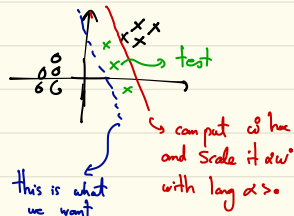 test
comput ŵ
and scale it αŵ
with larg α>0
this is what
we want